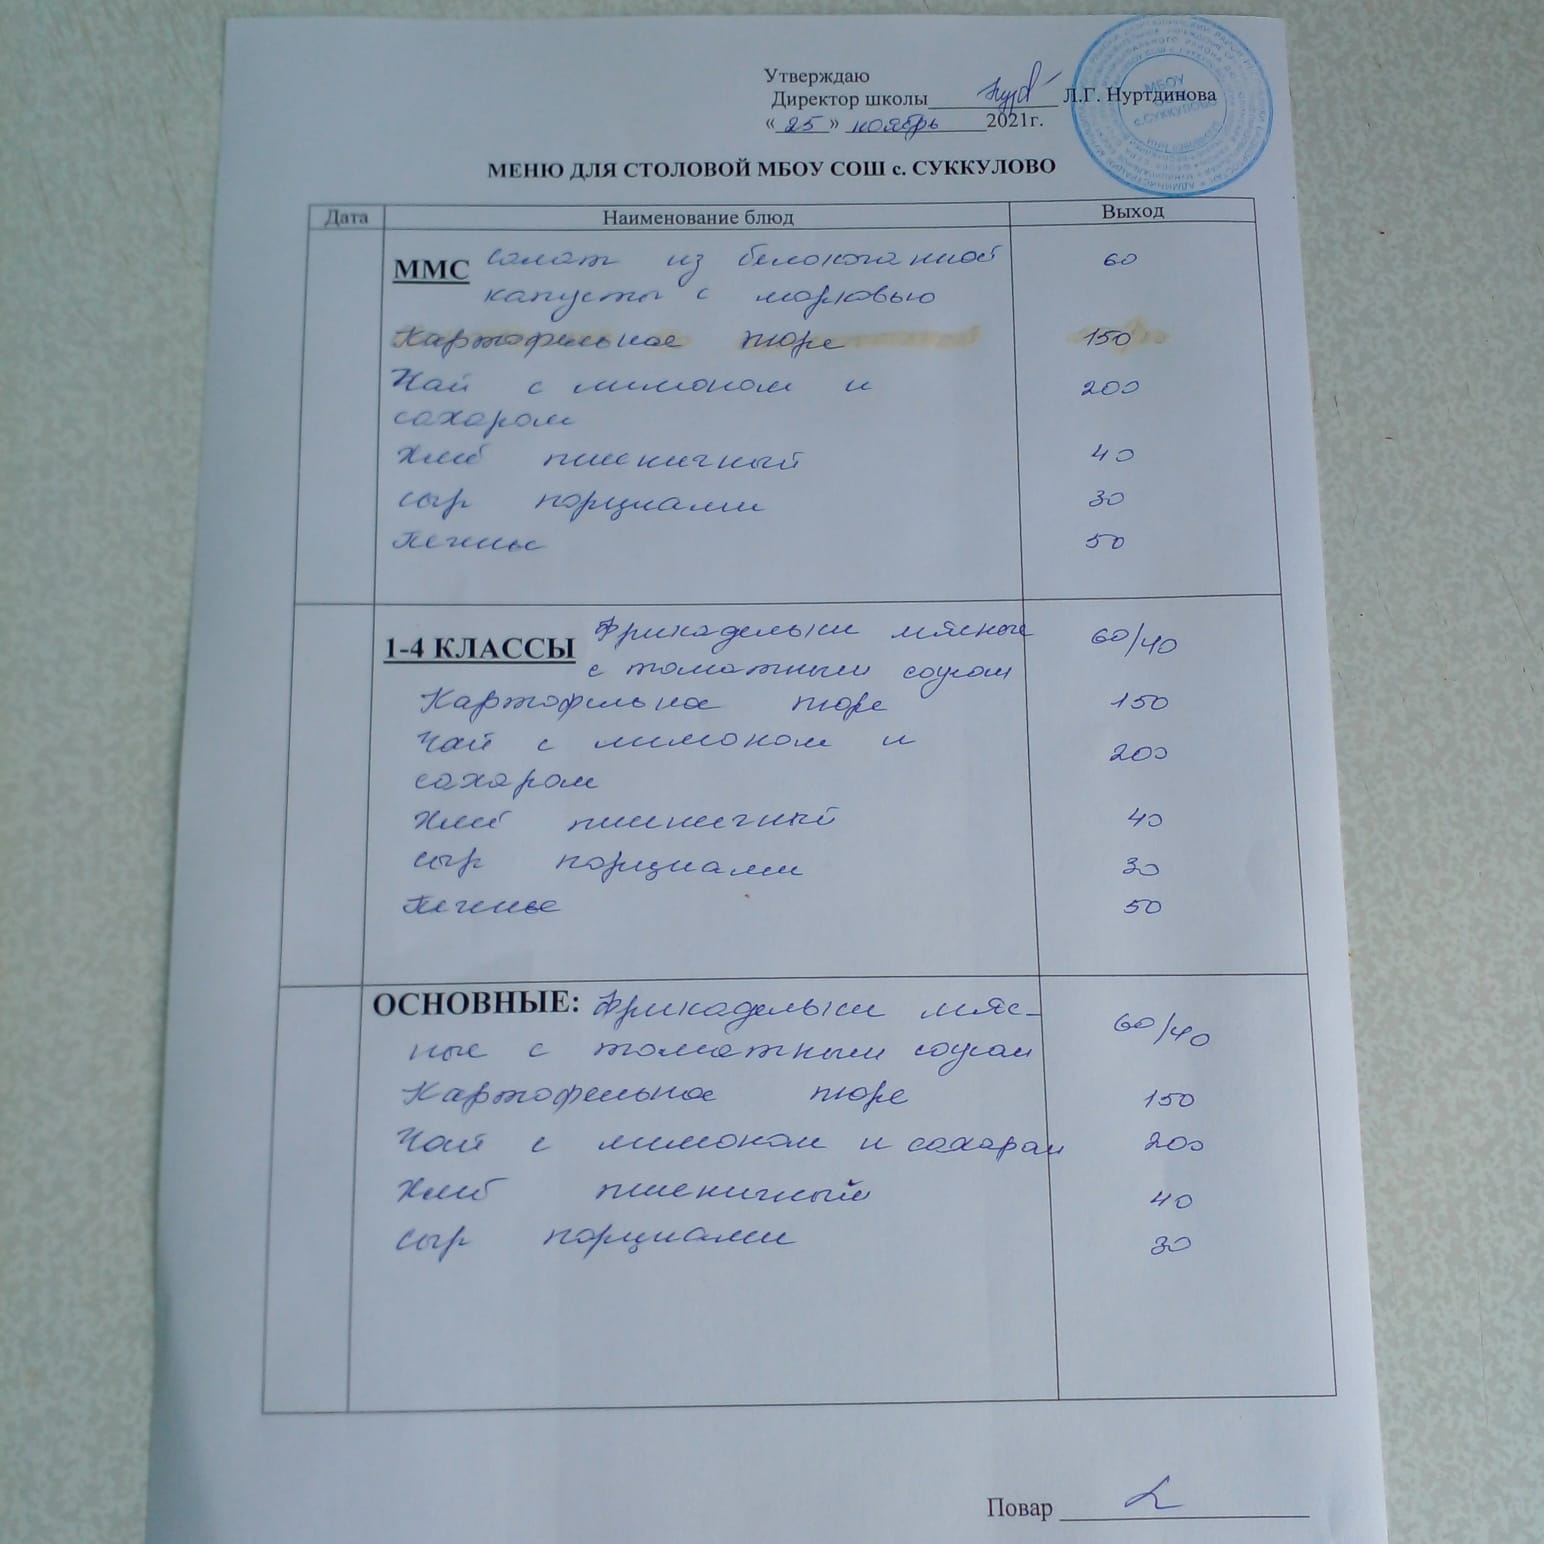 Утверждаю
Директор школы Л.Г. Нуртдинова
«25» ноябрь 2021г.
МБОУ
с.СУККУЛОВО
МЕНЮ ДЛЯ СТОЛОВОЙ МБОУ СОШ с. СУККУЛОВО
Дата Наименование блюд Выход
ММС Салат из белокочанной 60
капусты с морковью
Картофельное пюре 150
Чай с лимоном и 200
сахаром
Хлеб пшеничный 40
сыр порциями 30
Печенье 50
1-4 КЛАССЫ Фрикадельки мясные 60/40
с томатным соусом
Картофельное пюре 150
Чай с лимоном и 200
сахаром
Хлеб пшеничный 40
сыр порциями 30
Печенье 50
ОСНОВНЫЕ: Фрикадельки мяс- 60/40
ные с томатным соусом
Картофельное пюре 150
Чай с лимоном и сахаром 200
Хлеб пшеничный 40
сыр порциями 30
Повар